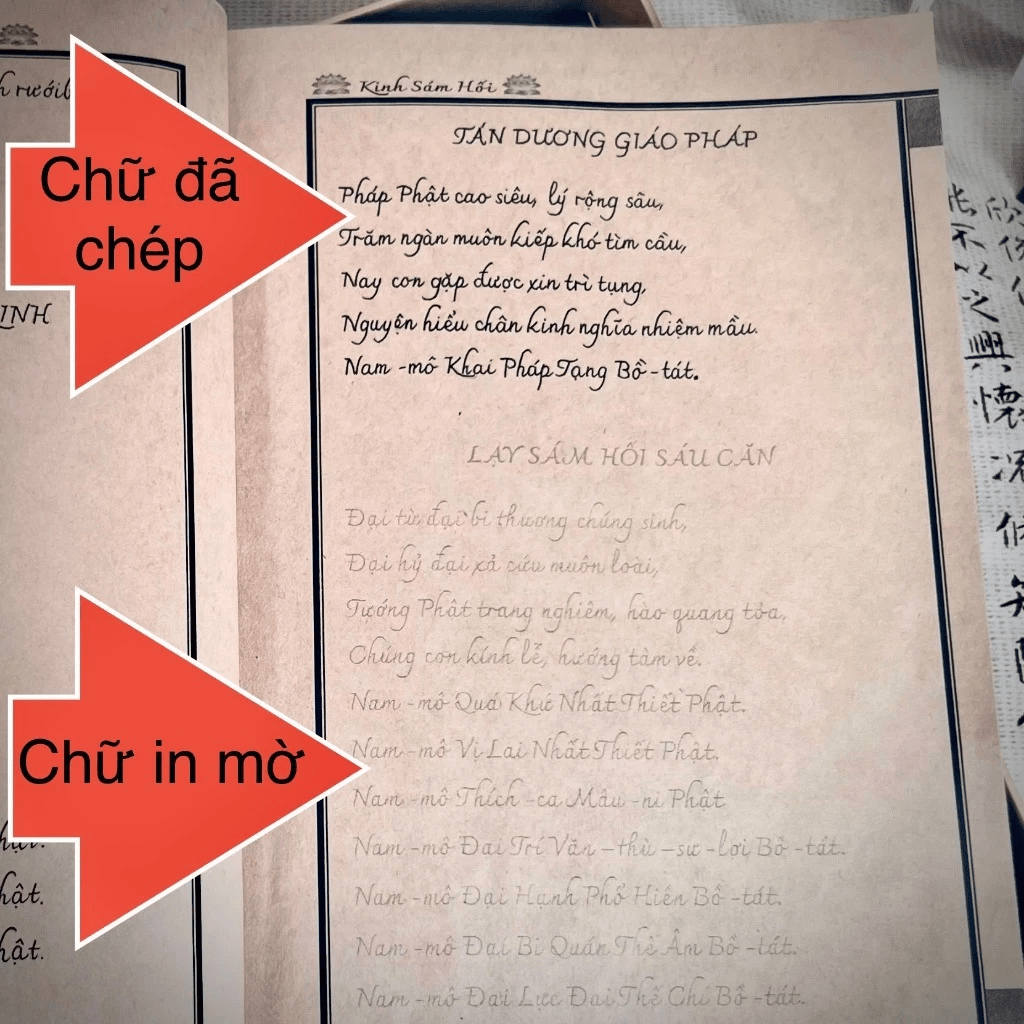 Chữ đã
chép
Chữ in mờ
INH
hật.
hật.
Kinh Sám Hối
TÁN DƯƠNG GIÁO PHÁP
Pháp Phật cao siêu, lý rộng sâu,
Trăm ngàn muôn kiếp khó tìm cầu,
Nay con gặp được xin trì tụng,
Nguyện hiểu chân kinh nghĩa nhiệm mầu.
Nam -mô Khai Pháp Tạng Bồ -tát.
LẠY SÁM HỐI SÁU CĂN
Đại từ đại bi thương chúng sinh,
Đại hỷ đại xả cứu muôn loài,
Tướng Phật trang nghiêm, hào quang tỏa,
Chúng con kính lễ, hướng tâm về.
Nam -mô Quá Khứ Nhất Thiết Phật.
Nam -mô Vị Lai Nhất Thiết Phật.
Nam -mô Thích -ca Mâu -ni Phật
Nam -mô Đại Trí Văn -thù -sư -lợi Bồ -tát.
Nam -mô Đại Hạnh Phổ Hiền Bồ -tát.
Nam -mô Đại Bi Quán Thế Âm Bồ -tát.
Nam -mô Đại Lực Đại Thế Chí Bồ -tát.
之
興
懷